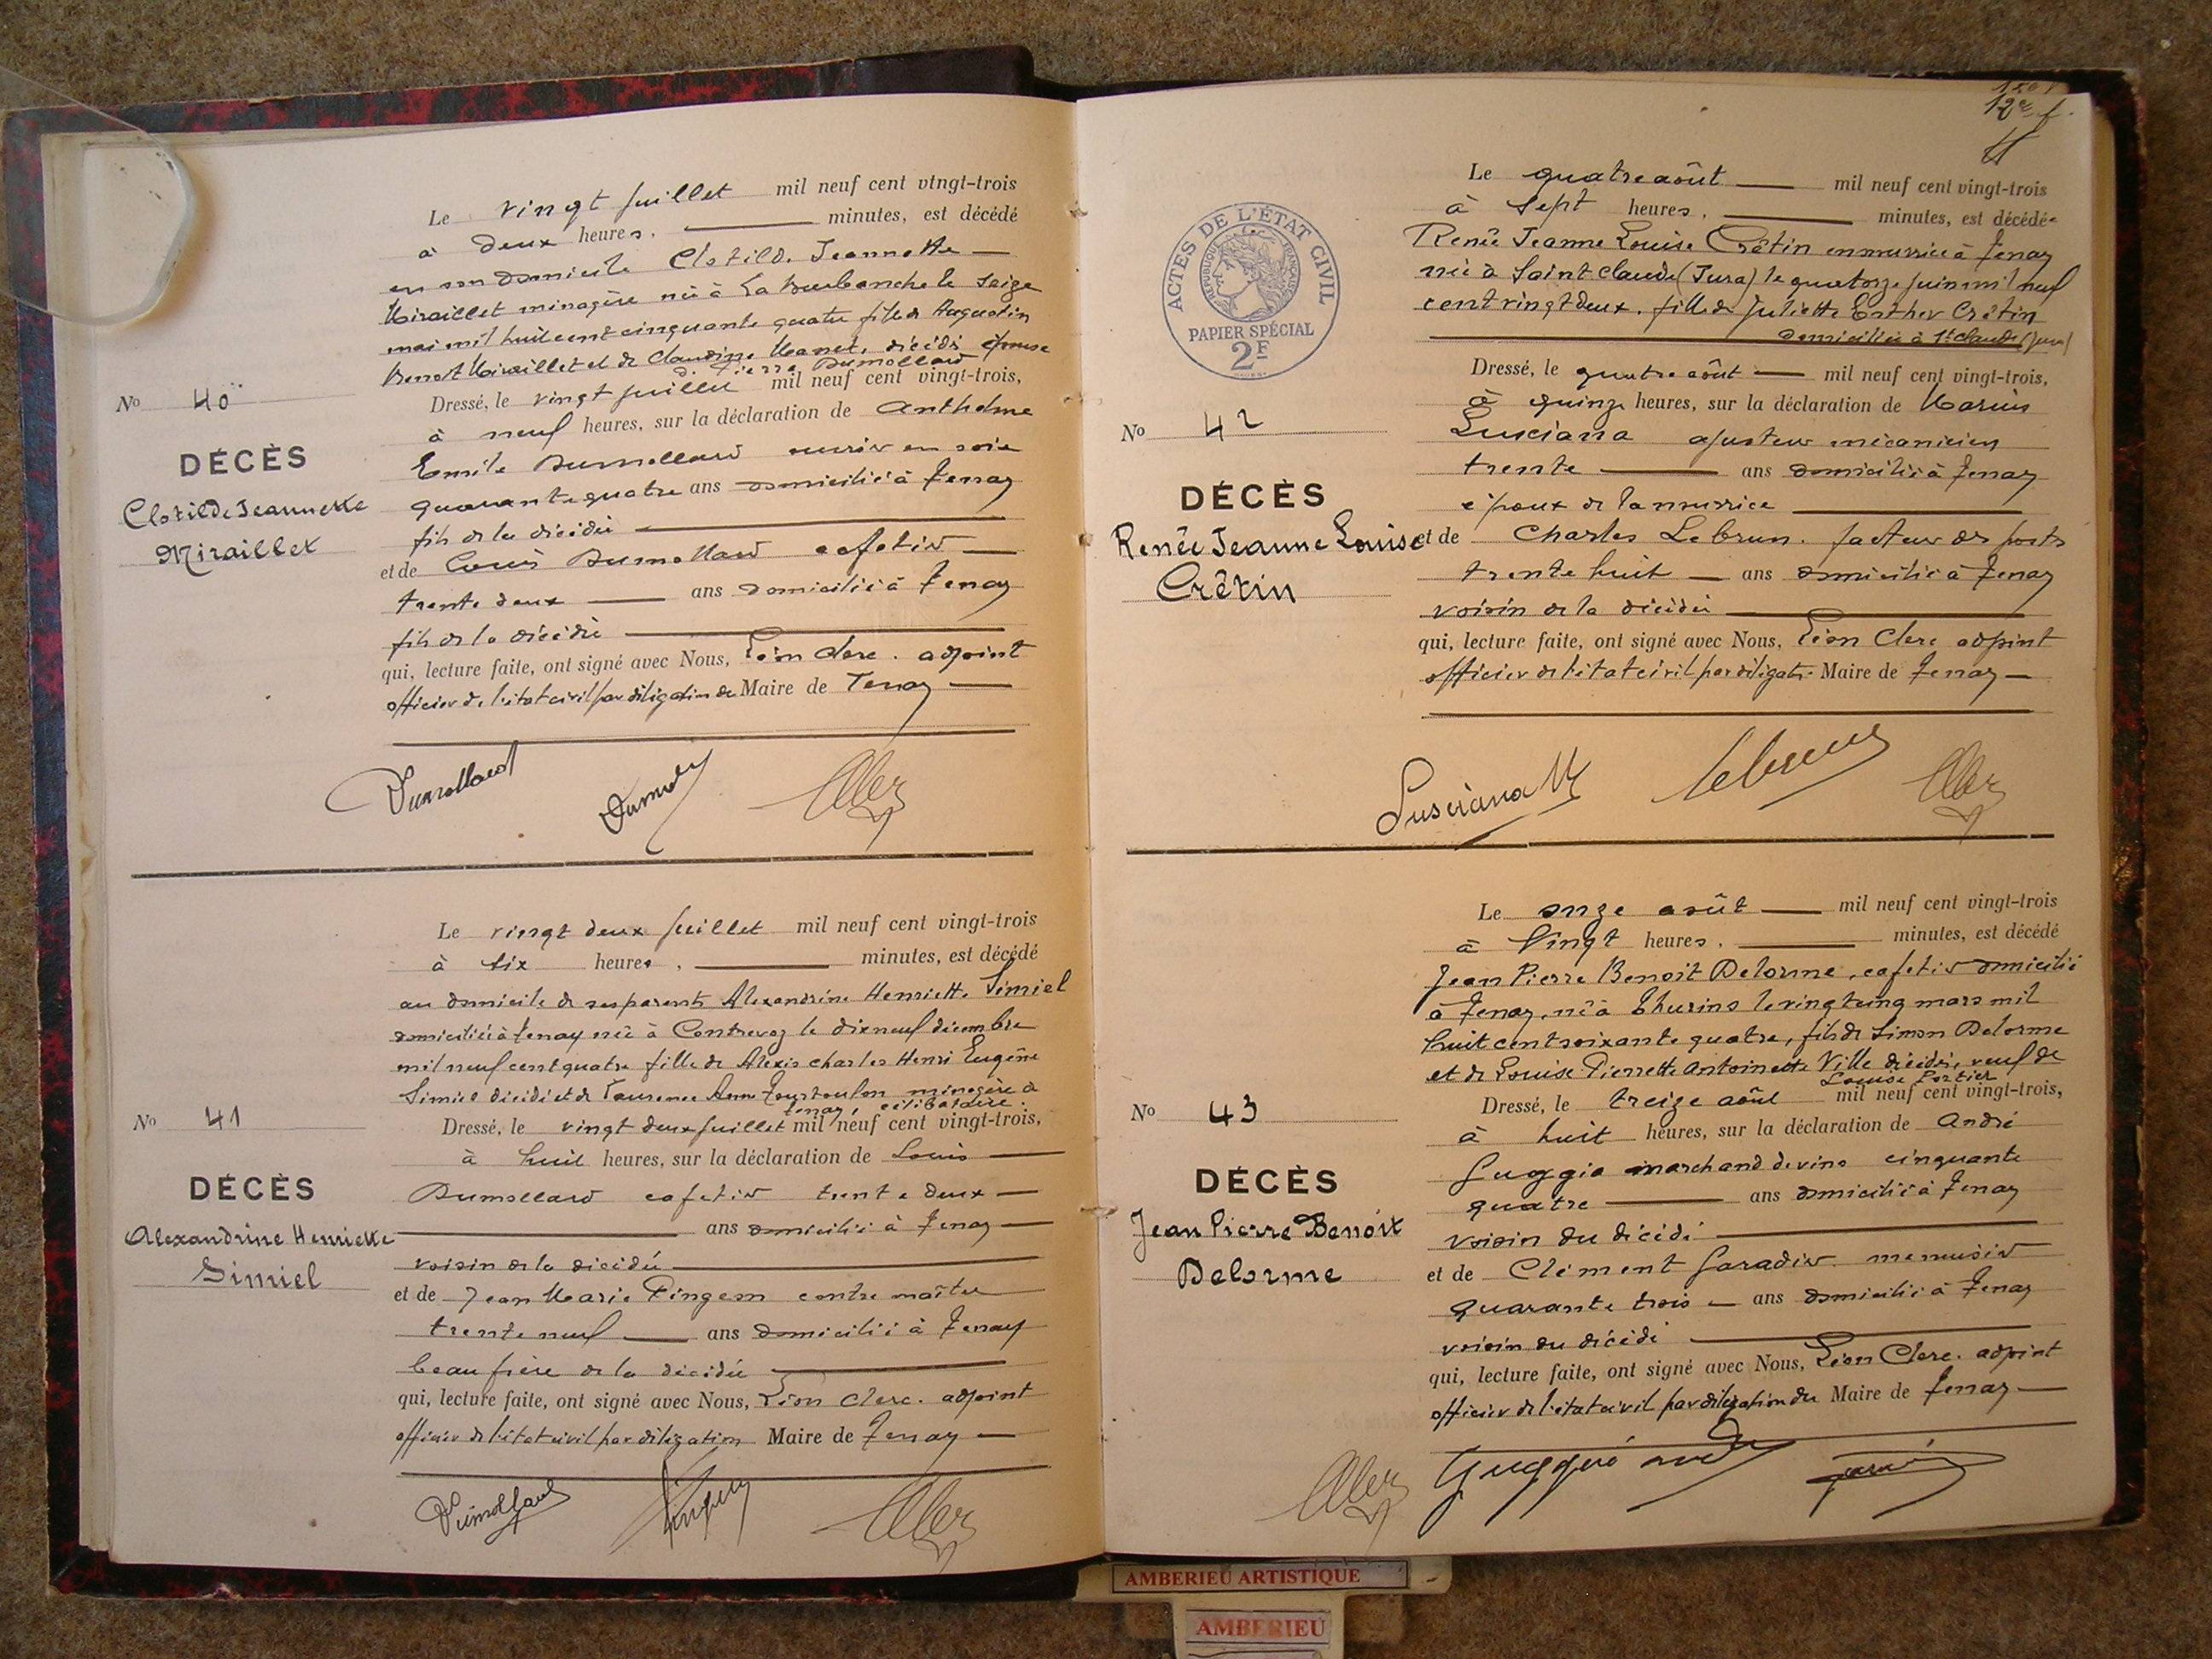 Le vingt juillet mil neuf cent vingt-trois
à deux heures, minutes, est décédé
en son domicile Clotilde Jeannette
Miraillet ménagère née à La Burbanche le seize
mai mil huit cent cinquante quatre fille de Augustin
Benoit Miraillet et de Claudine Manet, décédés épouse
de Pierre Dumollard
Dressé, le vingt juillet mil neuf cent vingt-trois,
à neuf heures, sur la déclaration de Anthelme
Emile Dumollard ouvrier en soie
quarante quatre ans domicilié à Tenay
fils de la décédée
et de Louis Dumollard cafetier
trente deux ans domicilié à Tenay
fils de la décédée
qui, lecture faite, ont signé avec Nous, Léon Clerc. adjoint
officier de l'état civil par délégation du Maire de Tenay
No 40
DÉCÈS
Clotilde Jeannette
Miraillet
Dumollard
Le vingt deux juillet mil neuf cent vingt-trois
à six heures, minutes, est décédé
au domicile de ses parents Alexandrine Henriette Simiel
domiciliée à Tenay née à Contrevoz le dix neuf décembre
mil neuf cent quatre fille de Alexis Charles Henri Eugène
Simiel décédé et de Laurence Anne Tourtoulon ménagère à
Tenay, célibataire.
Dressé, le vingt deux juillet mil neuf cent vingt-trois,
à huit heures, sur la déclaration de Louis
Dumollard cafetier trente deux
ans domicilié à Tenay
voisin de la décédée
et de Jean Marie Pingeon contre maître
trente neuf ans domicilié à Tenay
beau frère de la décédée
qui, lecture faite, ont signé avec Nous, Léon Clerc. adjoint
officier de l'état civil par délégation Maire de Tenay
No 41
DÉCÈS
Alexandrine Henriette
Simiel
Dumollard
12e f.
ACTES DE L'ÉTAT CIVIL
RÉPUBLIQUE FRANÇAISE
PAPIER SPÉCIAL
2F
Le quatre août mil neuf cent vingt-trois
à sept heures, minutes, est décédée
Renée Jeanne Louise Crétin en nourrice à Tenay
née à Saint Claude (Jura) le quatorze juin mil neuf
cent vingt deux. fille de Juliette Esther Crétin
domiciliée à St Claude (Jura)
Dressé, le quatre août mil neuf cent vingt-trois,
à quinze heures, sur la déclaration de Marius
Lusciana ajusteur mécanicien
trente ans domicilié à Tenay
époux de la nourrice
et de Charles Lebrun. facteur des postes
trente huit ans domicilié à Tenay
voisin de la décédée
qui, lecture faite, ont signé avec Nous, Léon Clerc adjoint
officier de l'état civil par délégat. Maire de Tenay
No 42
DÉCÈS
Renée Jeanne Louise
Crêtin
Lusciana M Lebrun
Le onze août mil neuf cent vingt-trois
à Vingt heures, minutes, est décédé
Jean Pierre Benoit Delorme, cafetier domicilié
à Tenay, né à Thurins le vingt cinq mars mil
huit cent soixante quatre, fils de Simon Delorme
et de Louise Pierrette Antoinette Ville décédés, veuf de
Louise Portier
Dressé, le treize août mil neuf cent vingt-trois,
à huit heures, sur la déclaration de André
Guggia marchand de vins cinquante
quatre ans domicilié à Tenay
voisin du décédé
et de Clément Garadier menuisier
quarante trois ans domicilié à Tenay
voisin du décédé
qui, lecture faite, ont signé avec Nous, Léon Clerc. adjoint
officier de l'état civil par délégation du Maire de Tenay
No 43
DÉCÈS
Jean Pierre Benoît
Delorme
AMBERIEU ARTISTIQUE
AMBERIEU